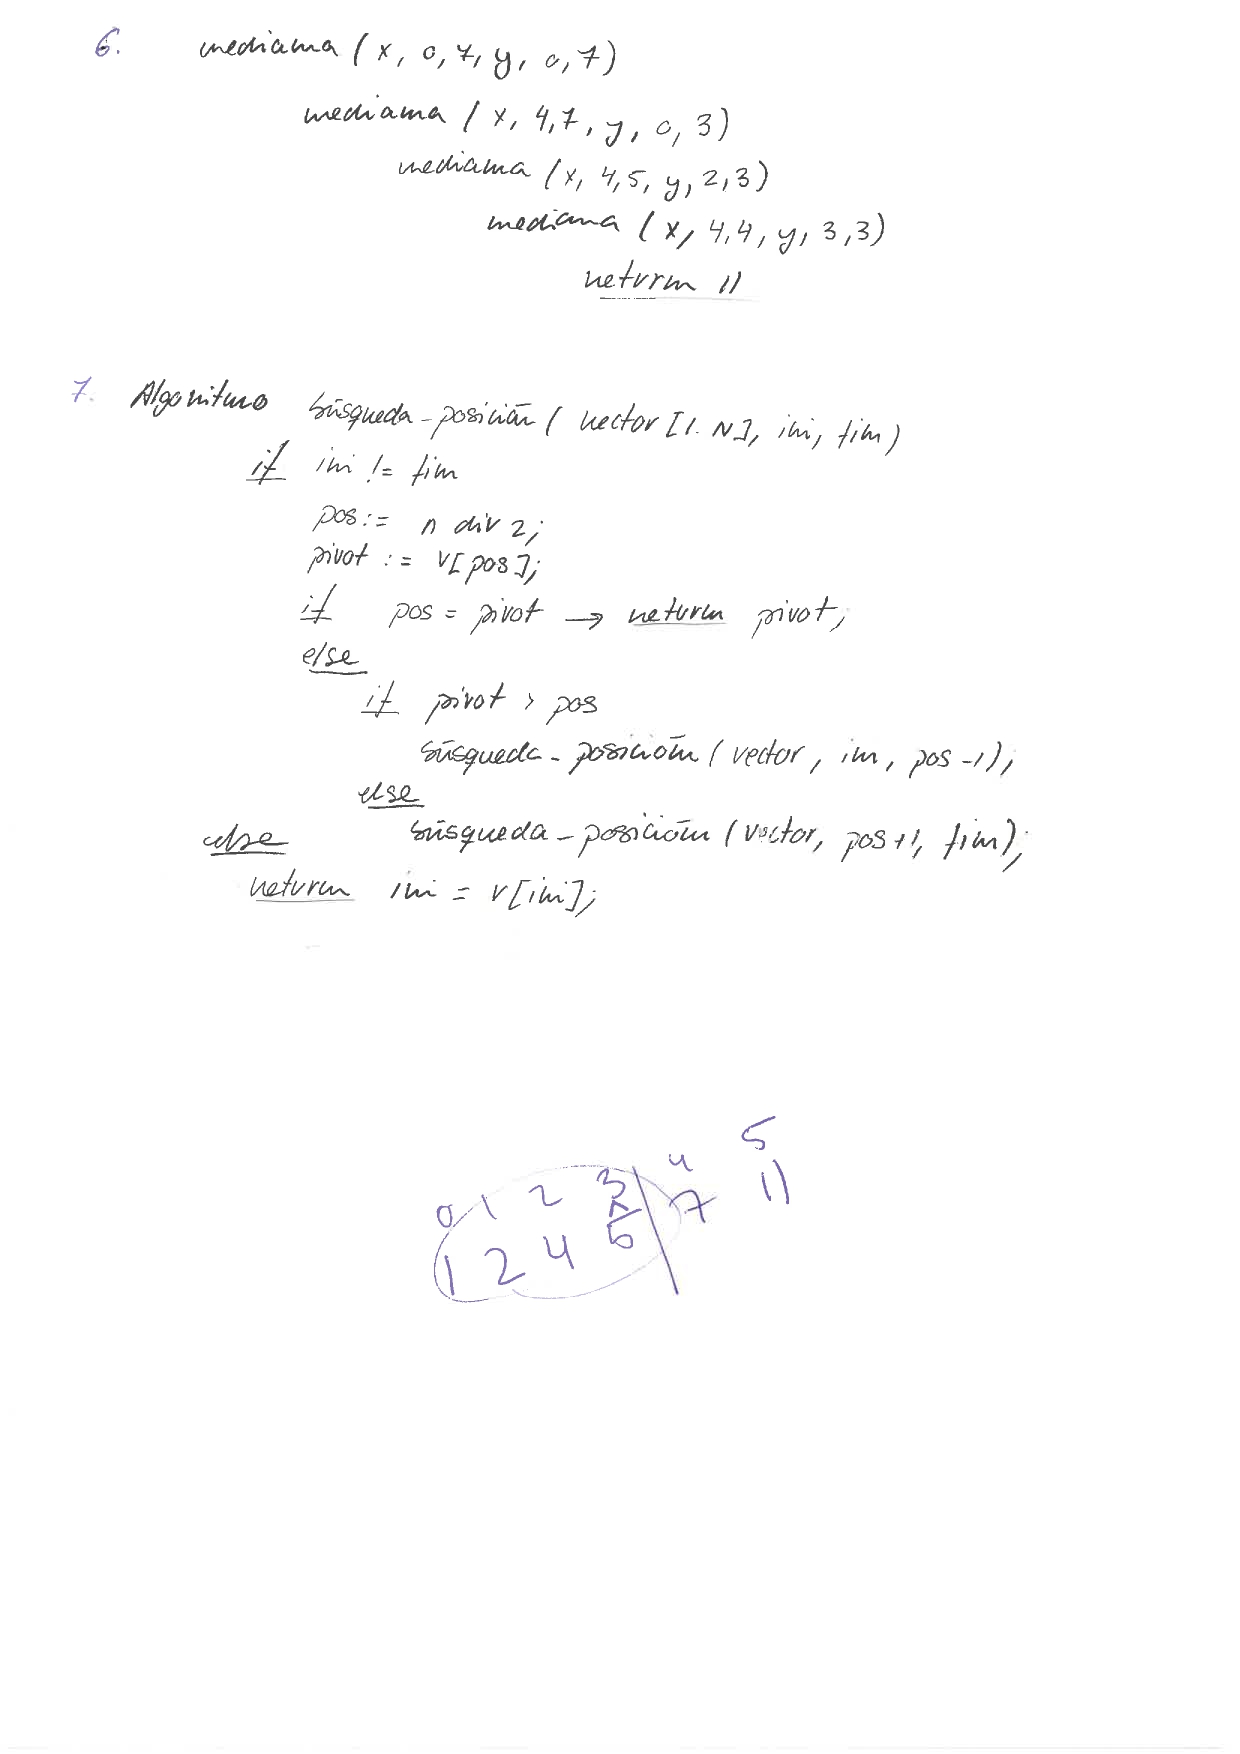 6. mediana (x, 0, 7, y, 0, 7)
mediana (x, 4, 7, y, 0, 3)
mediana (x, 4, 5, y, 2, 3)
mediana (x, 4, 4, y, 3, 3)
return 11
7. Algoritmo búsqueda-posición (vector [1..N], ini, fin)
if ini != fin
pos := n div 2;
pivot := v[pos];
if pos = pivot → return pivot;
else
if pivot > pos
búsqueda-posición (vector, ini, pos-1);
else
búsqueda-posición (vector, pos+1, fin);
else
return ini = v[ini];
0 1 2 3 4 5
1 2 4 5 7 11